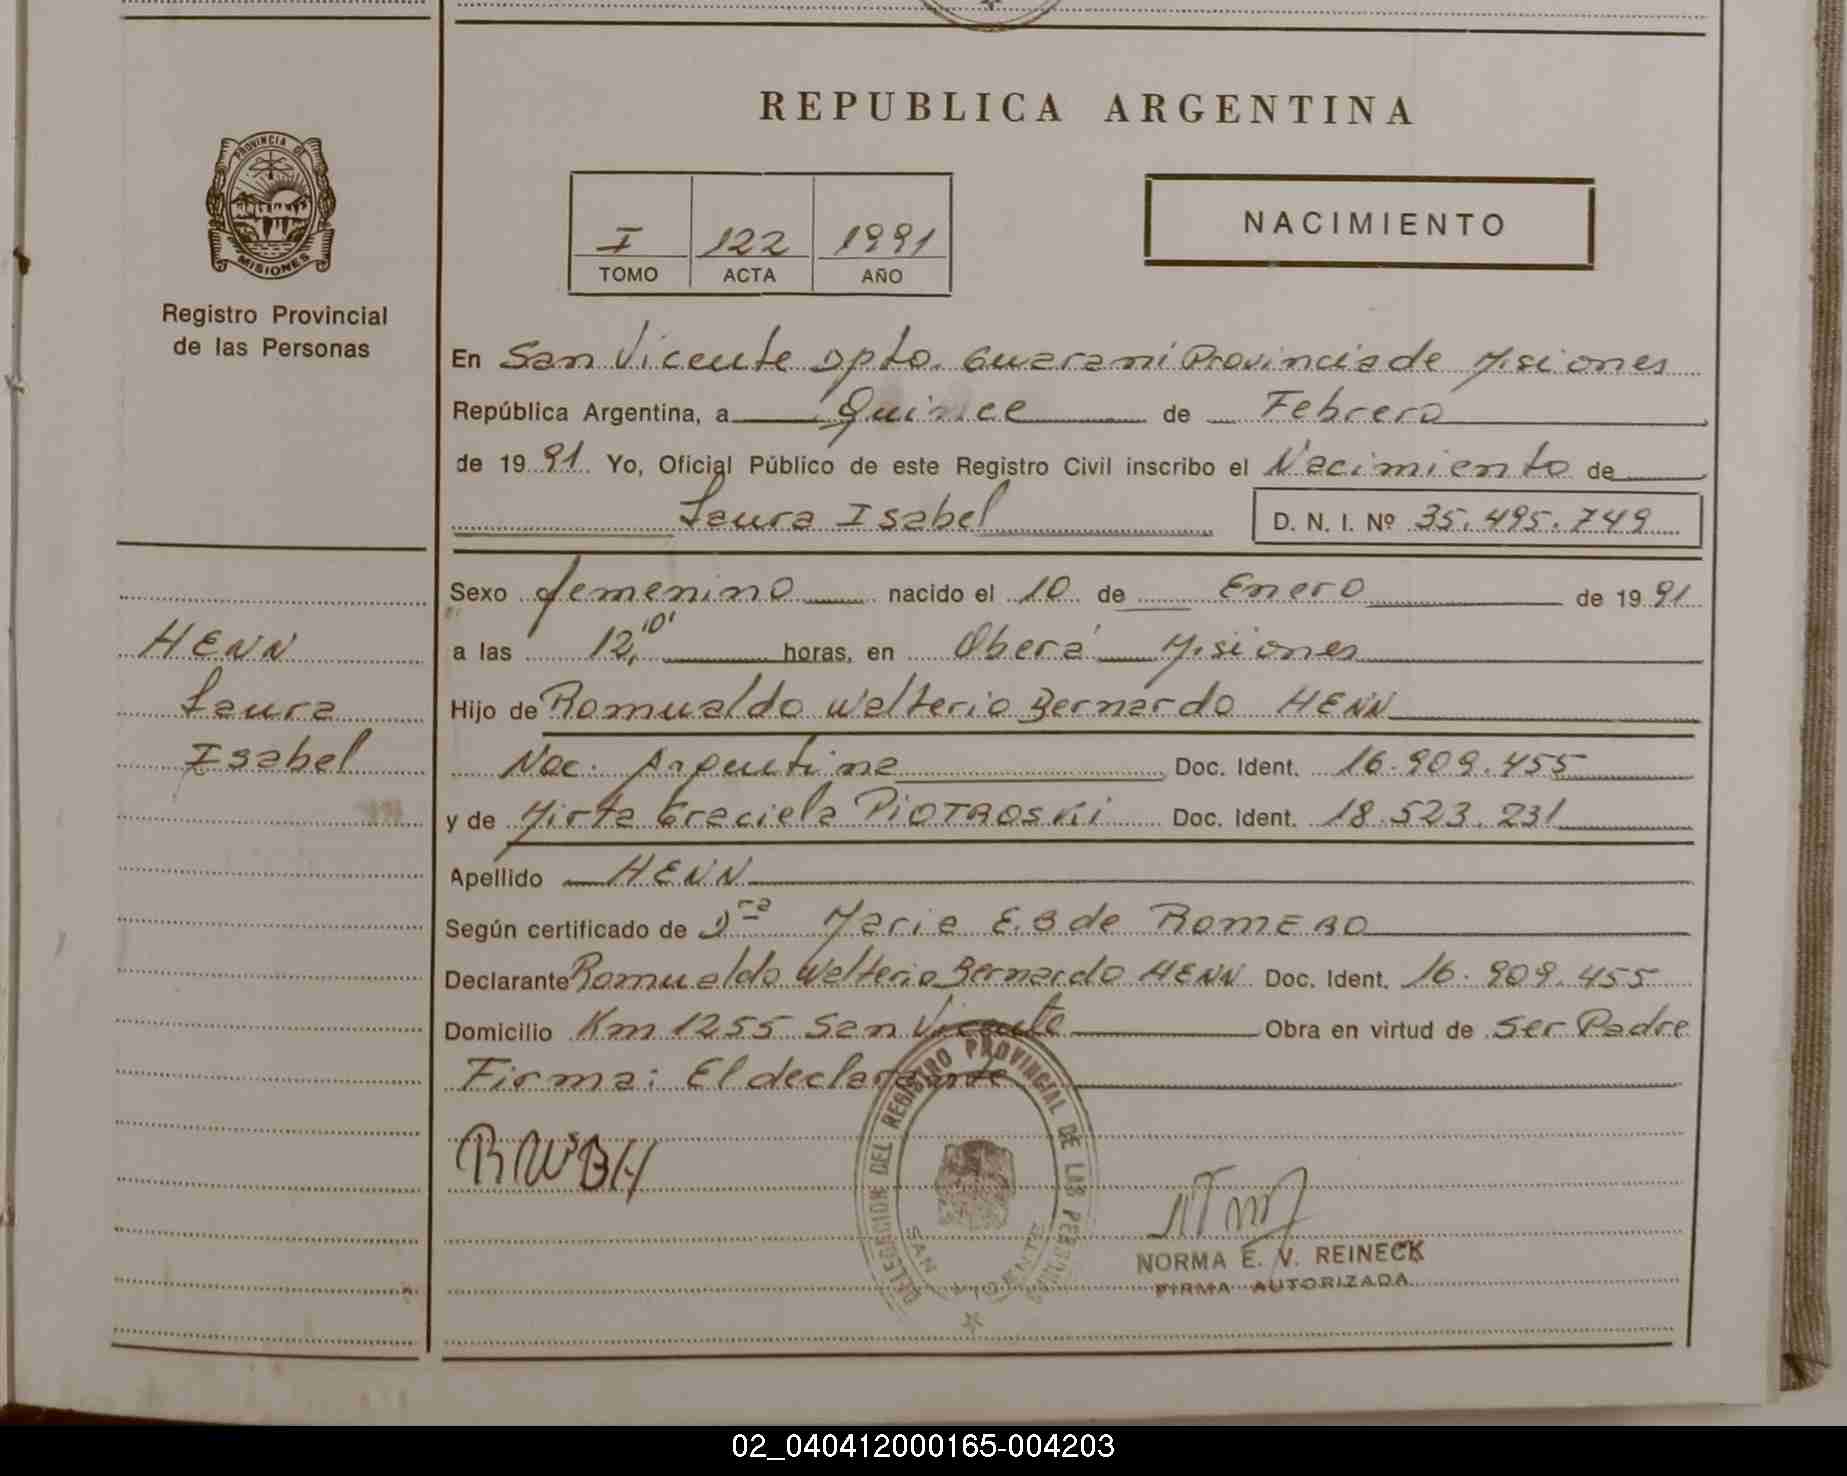 REPUBLICA ARGENTINA
PROVINCIA DE
MISIONES
Registro Provincial
de las Personas
I 122 1991
TOMO ACTA AÑO
NACIMIENTO
En San Vicente Dpto. Guaraní Provincia de Misiones
República Argentina, a Quince de Febrero
de 1991 Yo, Oficial Público de este Registro Civil inscribo el Nacimiento de
Laura Isabel D. N. I. Nº 35.495.749
Sexo femenino nacido el 10 de Enero de 1991
a las 12,10' horas, en Oberá Misiones
Hijo de Romualdo Walterio Bernardo HENN
Nac. Argentina Doc. Ident. 16.909.455
y de Mirta Graciela PIOTROSKI Doc. Ident. 18.523.231
Apellido HENN
Según certificado de Dra Maria E. B de ROMERO
Declarante Romualdo Walterio Bernardo HENN Doc. Ident. 16.909.455
Domicilio Km 1255 San Vicente Obra en virtud de Ser Padre
Firma: El declarante
HENN
Laura
Isabel
RWBH
DELEGACION DEL REGISTRO PROVINCIAL DE LAS PERSONAS
SAN VICENTE
NORMA E. V. REINECK
FIRMA AUTORIZADA
02_040412000165-004203